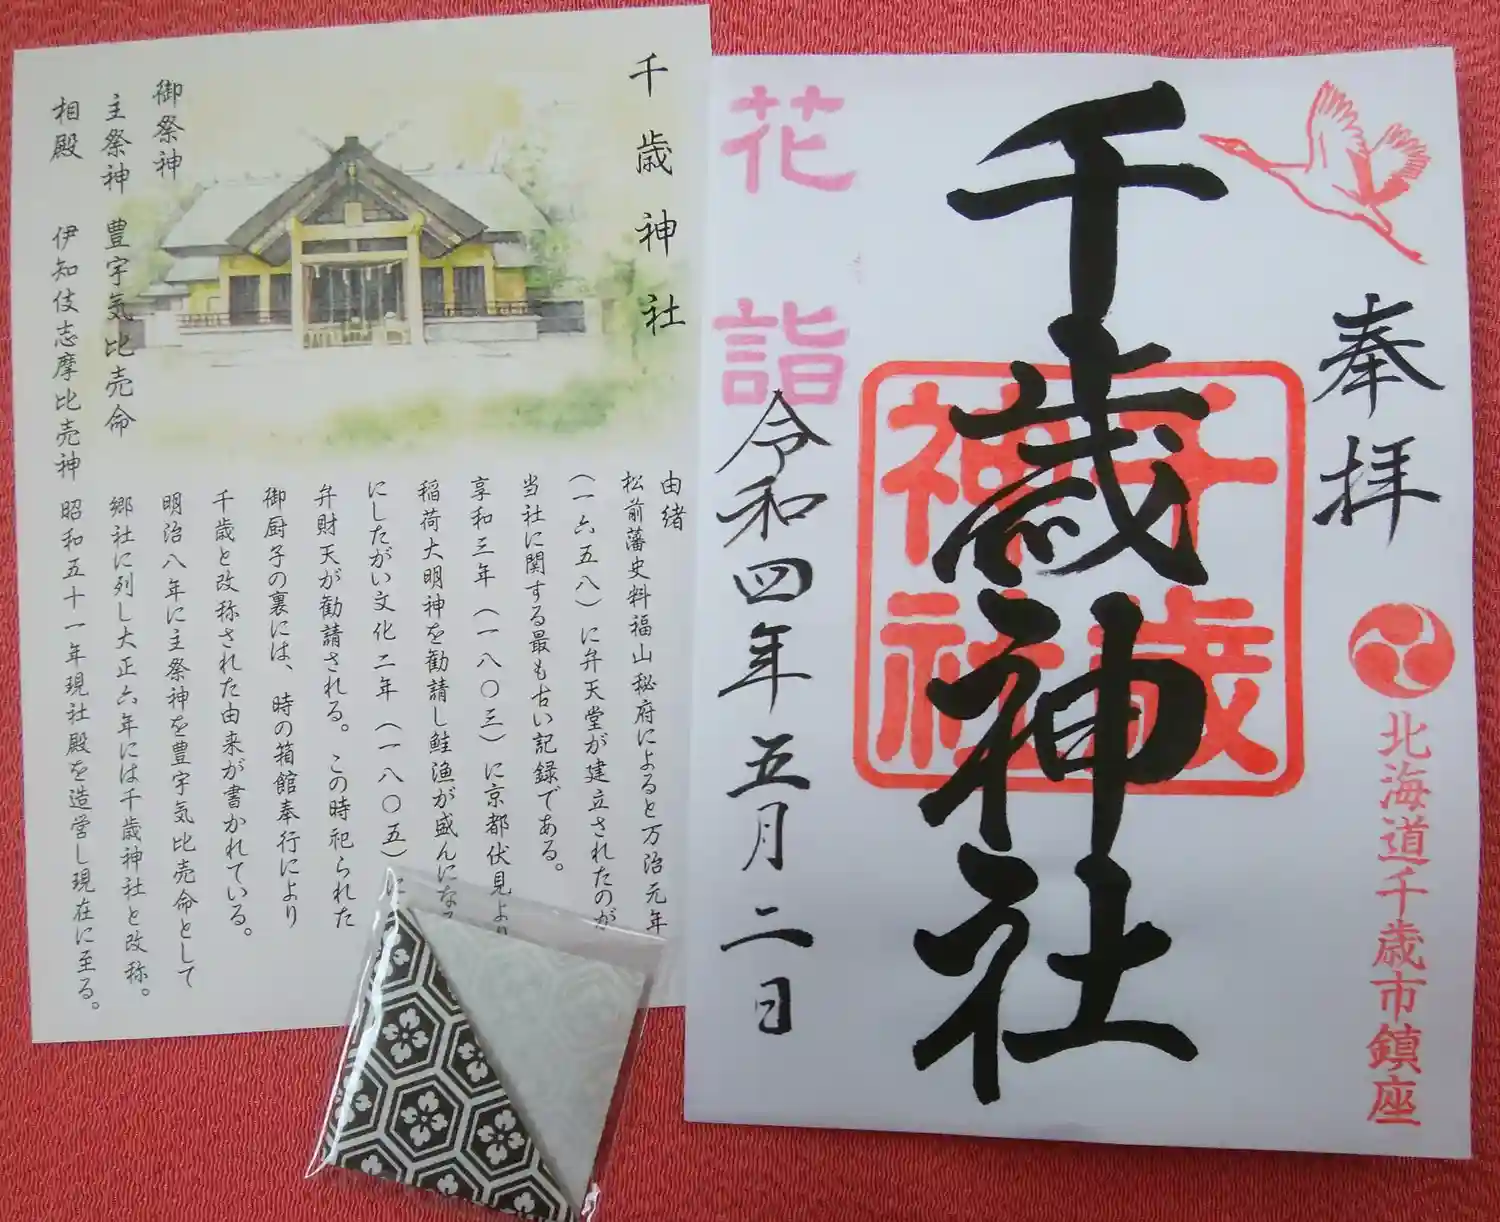 奉拝
北海道千歳市鎮座
千歳神社
千歳神社
花詣
令和四年五月二日
千歳神社
御祭神
主祭神 豊宇気比売命
相殿 伊知伎志摩比売神
由緒
松前藩史料福山秘府によると万治元年
(一六五八)に弁天堂が建立されたのが
当社に関する最も古い記録である。
享和三年(一八〇三)に京都伏見より
稲荷大明神を勧請し鮭漁が盛んになる
にしたがい文化二年(一八〇五)に
弁財天が勧請される。この時祀られた
御厨子の裏には、時の箱館奉行により
千歳と改称された由来が書かれている。
明治八年に主祭神を豊宇気比売命として
郷社に列し大正六年には千歳神社と改称。
昭和五十一年現社殿を造営し現在に至る。